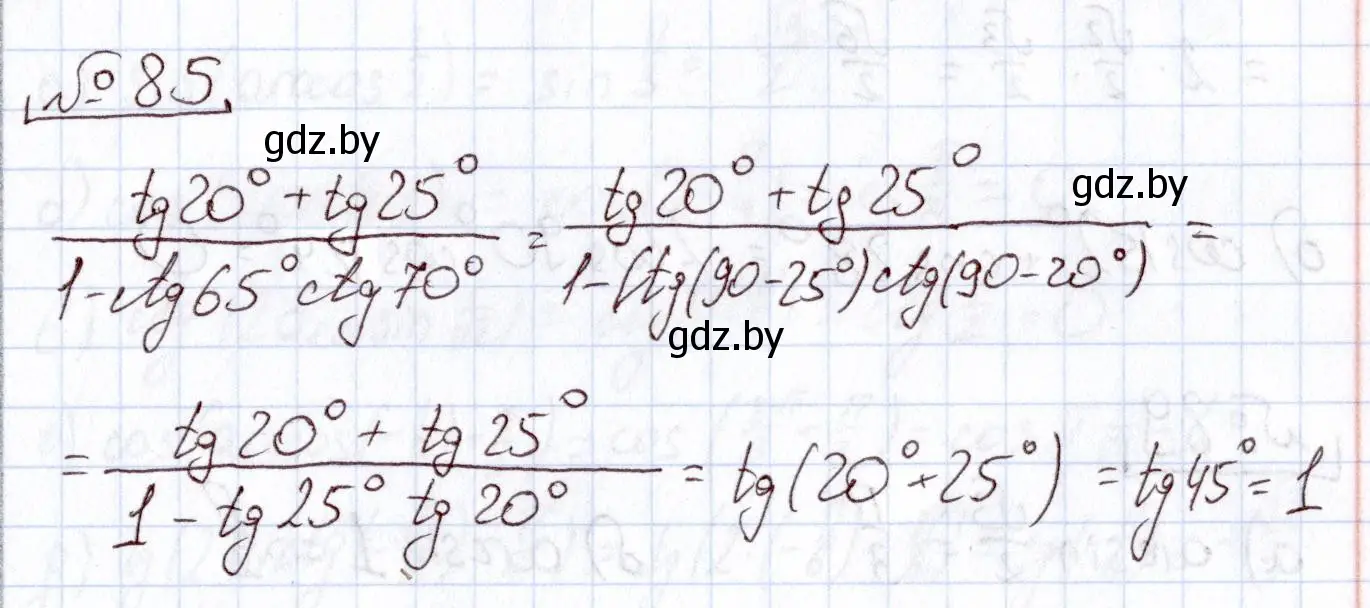 № 85
gdz.by
(tg 20° + tg 25°) / (1 - ctg 65° ctg 70°) = (tg 20° + tg 25°) / (1 - ctg(90 - 25°) ctg(90 - 20°)) =
gdz.by
gdz.by
= (tg 20° + tg 25°) / (1 - tg 25° tg 20°) = tg(20° + 25°) = tg 45° = 1